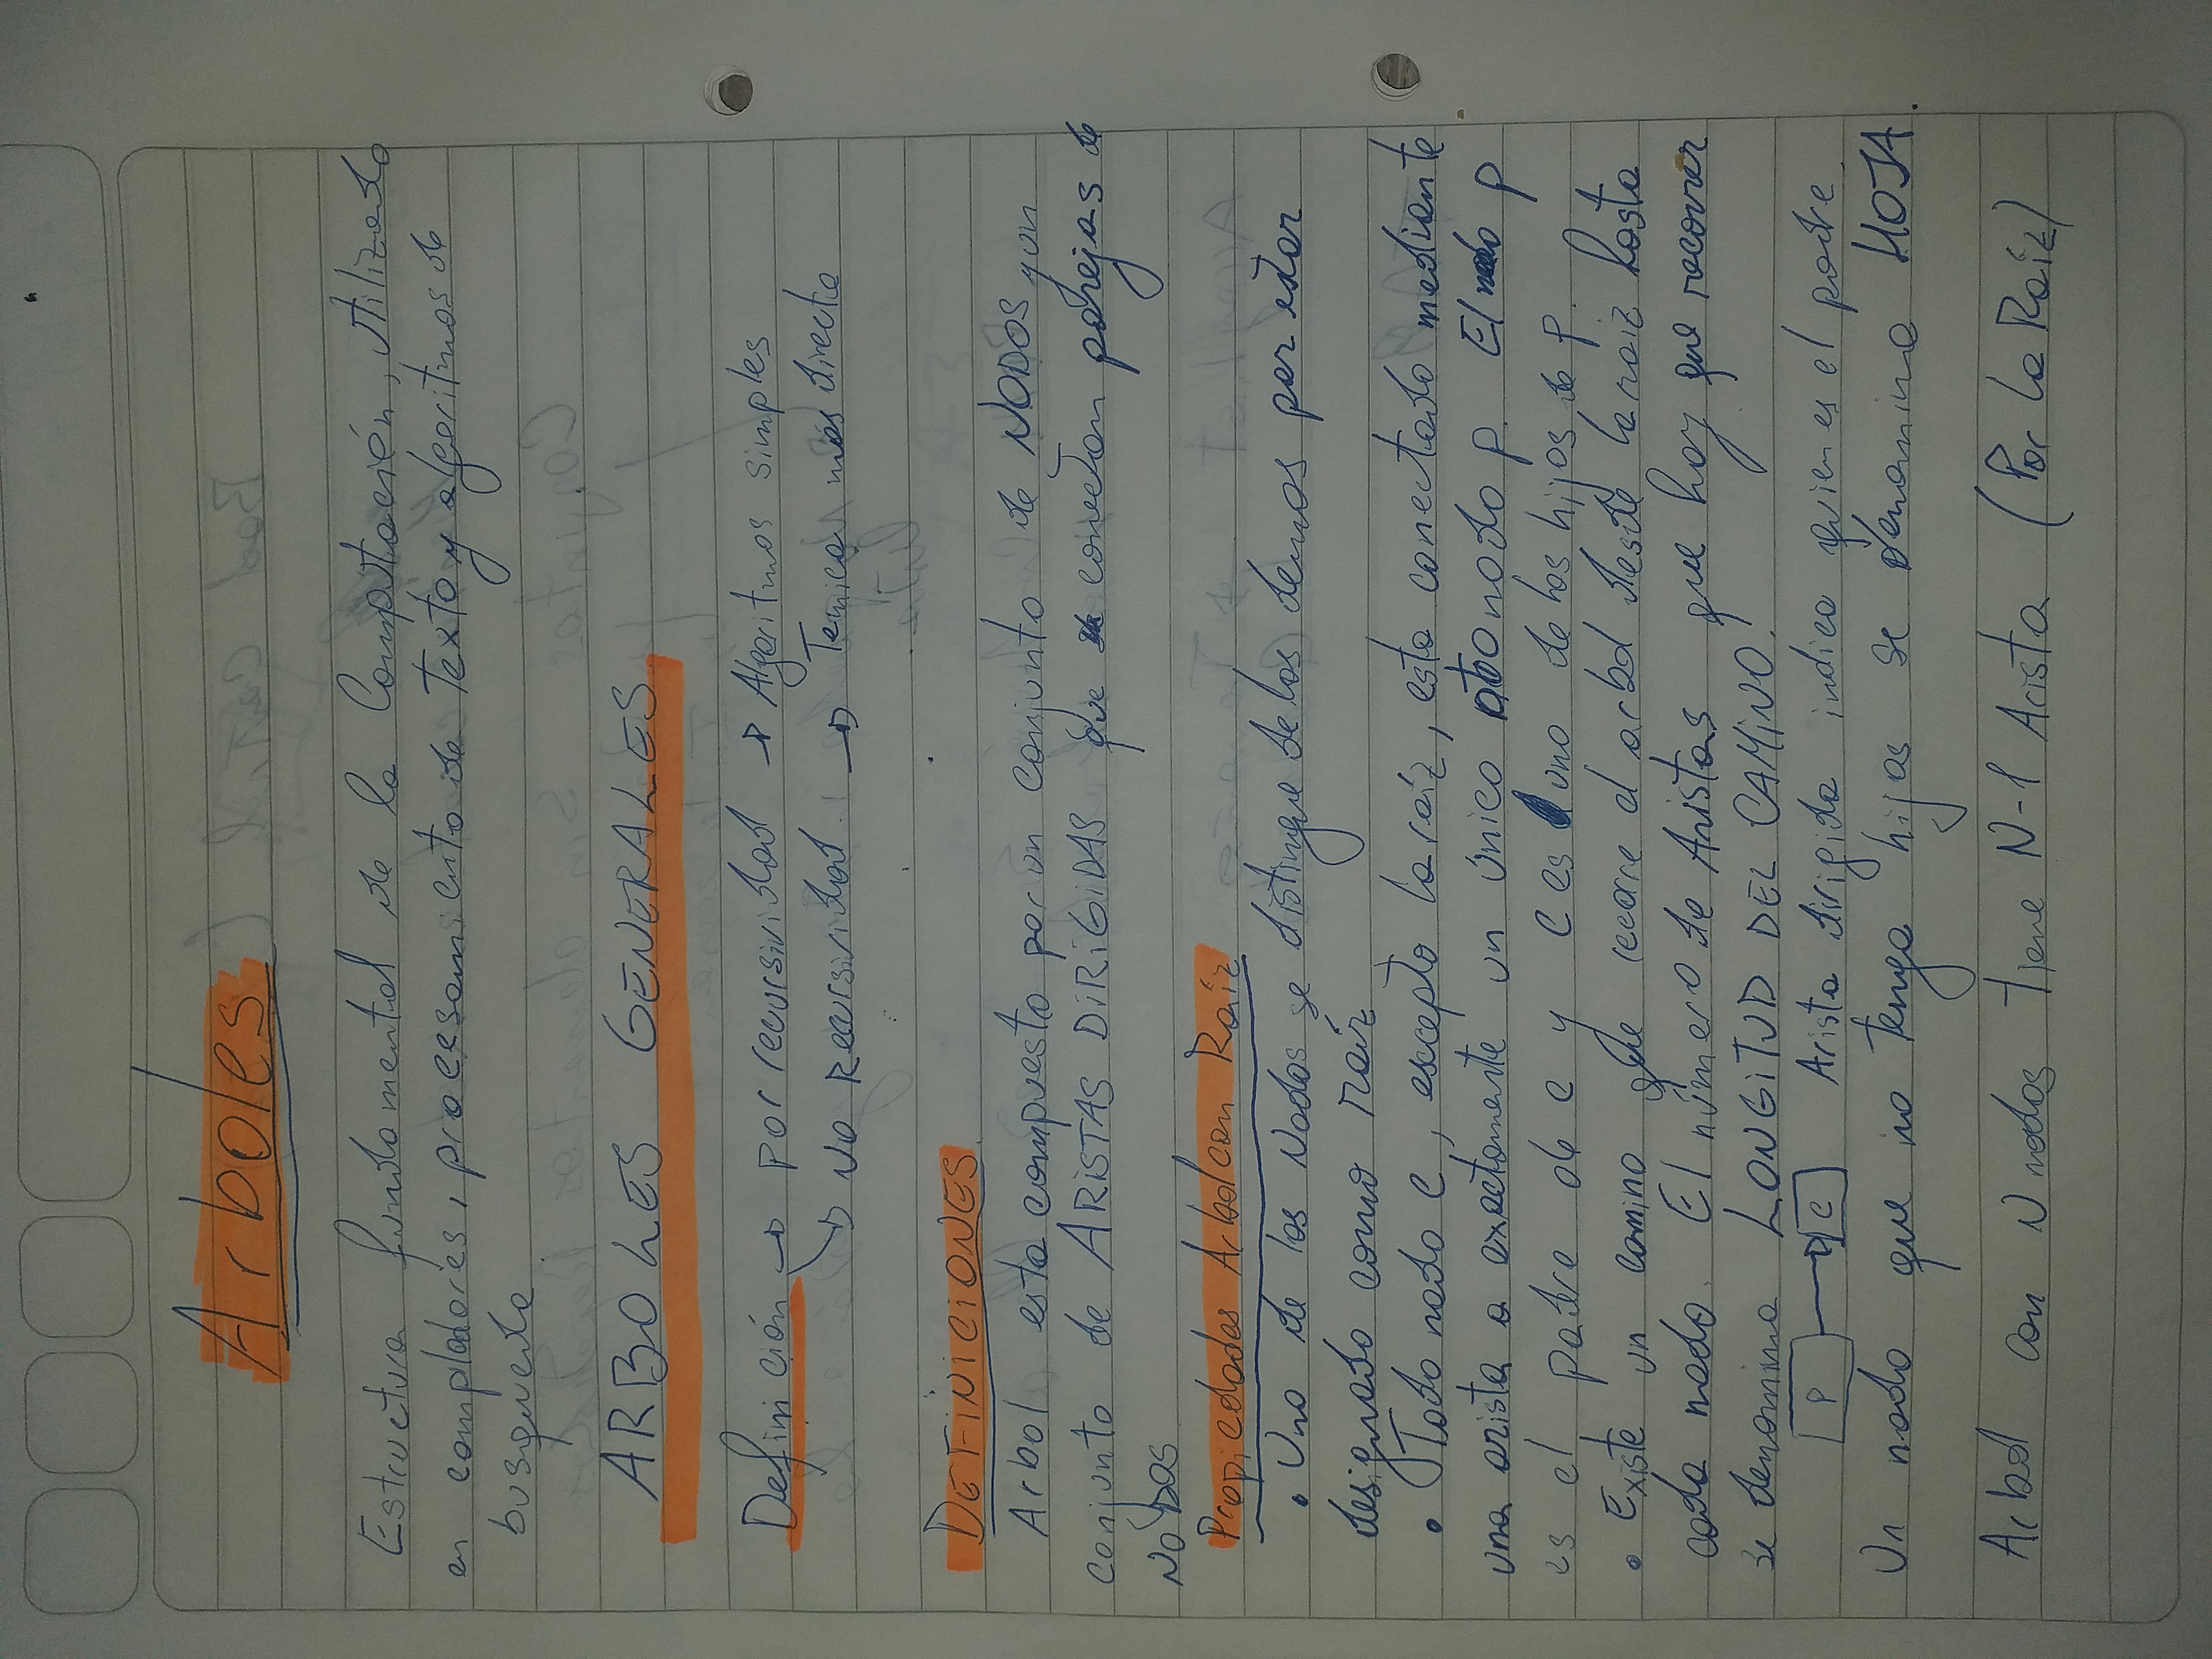 Arboles
Estructura fundamental de la Computación, Utilizada
en compiladores, procesamiento de Texto y algoritmos de
busqueda
ARBOLES GENERALES
Definición → por recursividad → Algoritmos simples
→ No Recursividad. → Tecnica más directa
DEFINICIONES
Arbol esta compuesto por un conjunto de NODOS y un
conjunto de ARISTAS DIRIGIDAS que conectan parejas de
NODOS
Propiedades Arbol con Raíz
• Uno de los Nodos se distingue de los demas por estar
designado como raíz
• Todo nodo C, excepto la raíz, esta conectado mediante
una arista a exactamente un único otro nodo p. El nodo p
es el padre de c y C es uno de los hijos de p.
• Existe un camino que recorre el arbol desde la raiz hasta
cada nodo. El número de Aristas que hay que recorrer
se denomina LONGITUD DEL CAMINO!
P → C Arista dirigida indica quien es el padre.
Un nodo que no tenga hijos se denomina HOJA.
Arbol con N nodos tiene N-1 Arista (Por la Raíz)